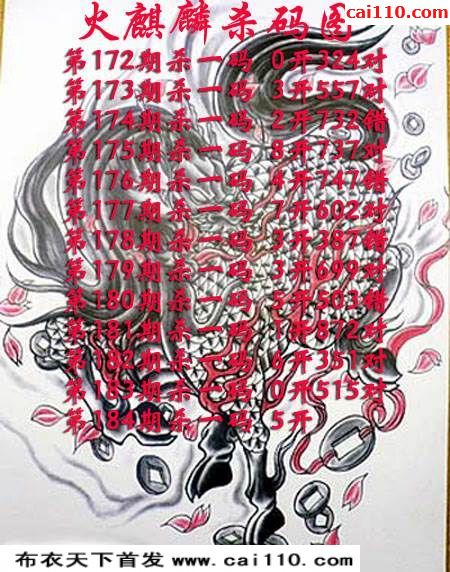 cai110.com
火麒麟杀码图
第172期杀一码 0开324对
第173期杀一码 3开557对
第174期杀一码 2开732错
第175期杀一码 8开737对
第176期杀一码 4开747错
第177期杀一码 7开602对
第178期杀一码 3开387错
第179期杀一码 3开699对
第180期杀一码 5开503错
第181期杀一码 1开872对
第182期杀一码 6开351对
第183期杀一码 0开515对
第184期杀一码 5开
布衣天下首发 www.cai110.com